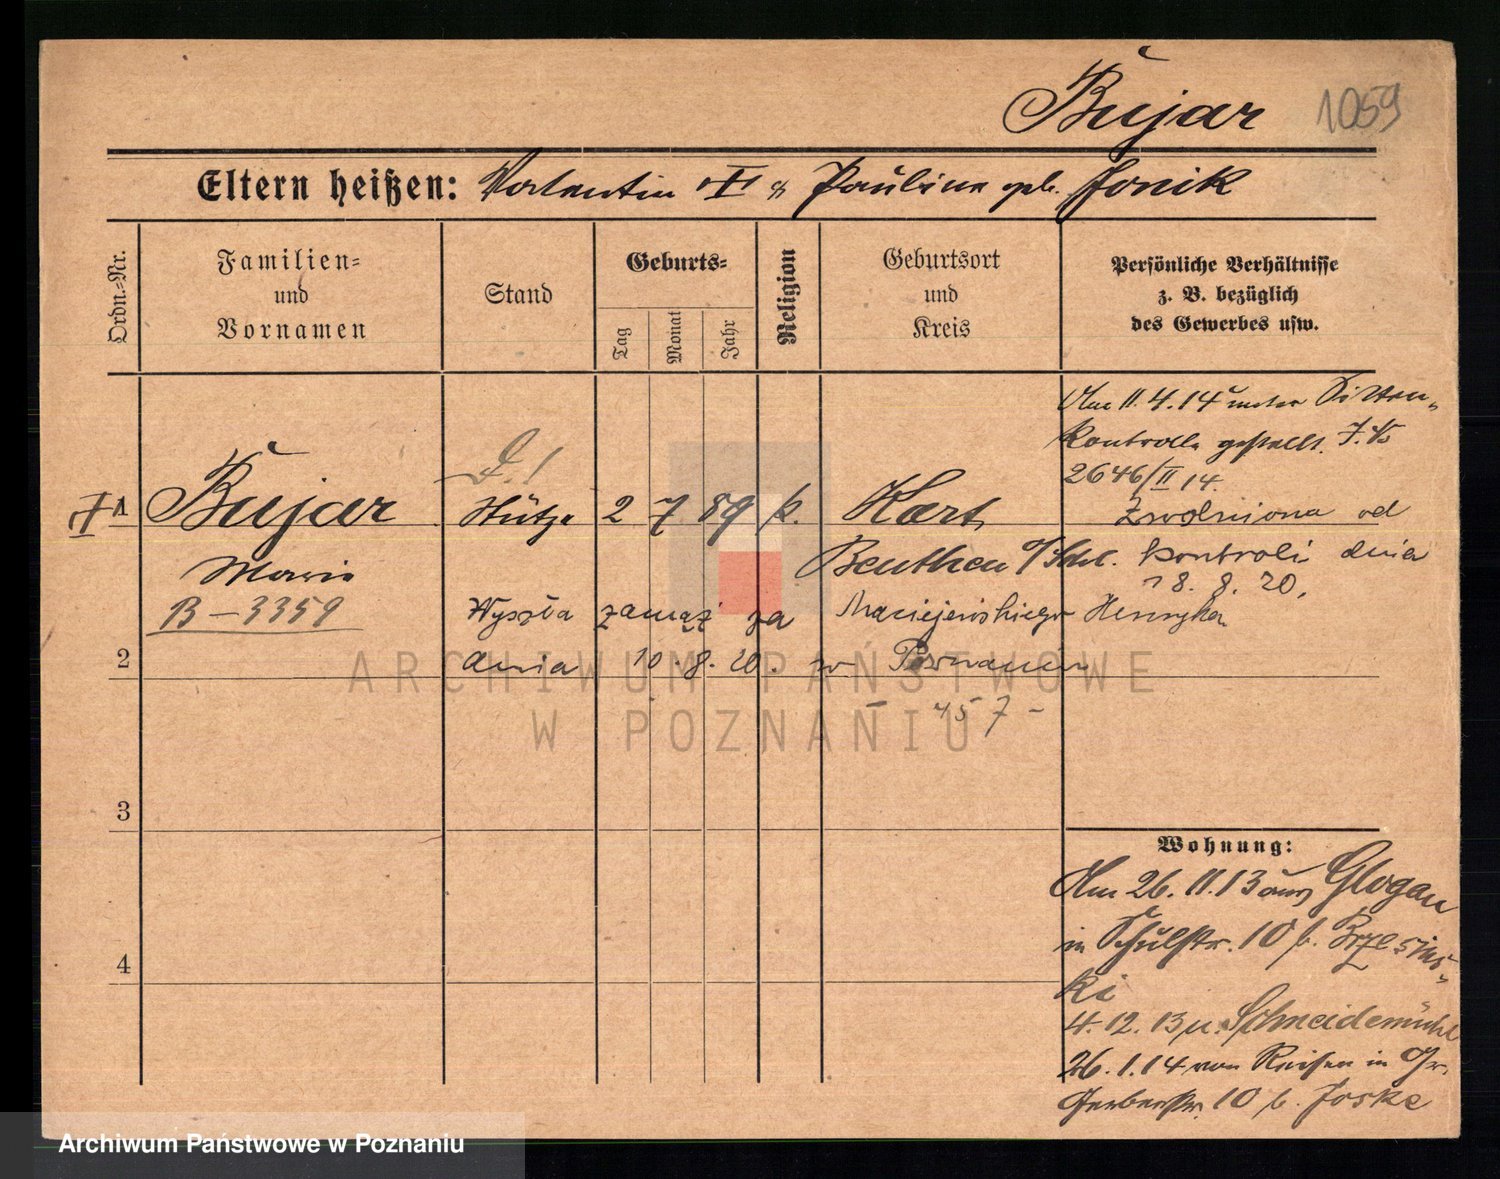 Bujar 1059
Eltern heißen: Valentin & Paulina geb. Jonik
Ordn.-Nr.
Familien-
und
Vornamen
Stand
Geburts-
Tag
Monat
Jahr
Religion
Geburtsort
und
Kreis
Persönliche Verhältnisse
z. B. bezüglich
des Gewerbes usw.
Am 11.4.14 unter Sitten-
kontrolle gestellt. J. No
2646/II 14.
Zwolniona od
kontroli dnia
18. 8. 20.
1 Bujar Stütze 2 7 89 k. Karf
Marie Beuthen O/Schl.
B-3359
Wyszła zamąż za Maciejewskiego Henryka
2 dnia 10.8.20. w Poznaniu
- 457 -
3
4
Wohnung:
Am 26.11.13 aus Glogau
in Schulstr. 10 b. Brzesins-
ki
4.12.13 n. Schneidemühl
26.1.14 von Reisen in Gr.
Gerberstr. 10 b. Joske
ARCHIWUM PAŃSTWOWE
W POZNANIU
Archiwum Państwowe w Poznaniu